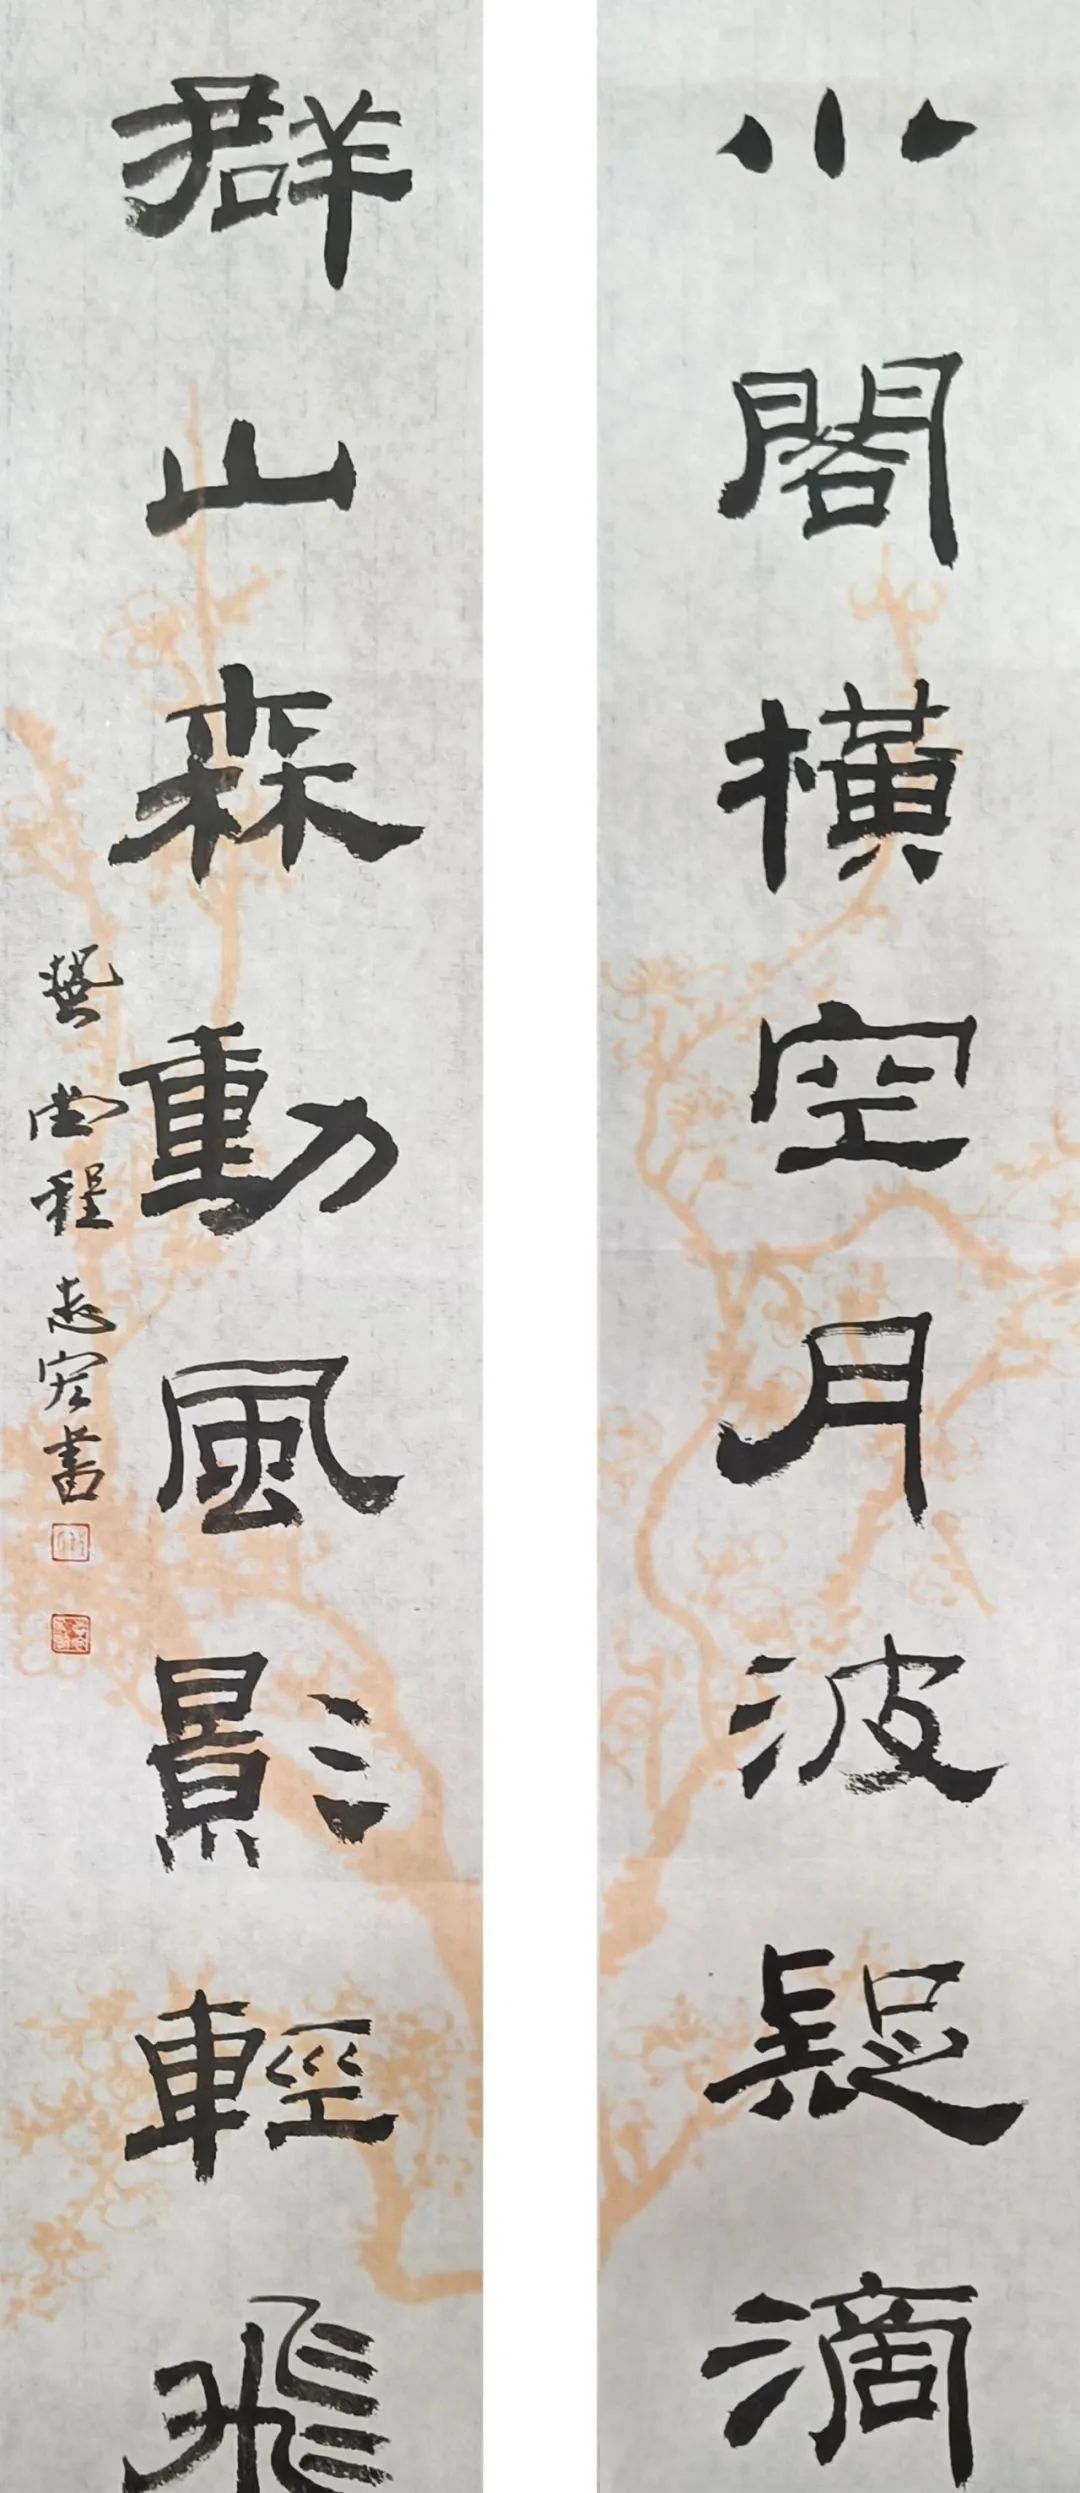 小閣橫空月波疑滴
群山森動風影輕飛
程志宏書